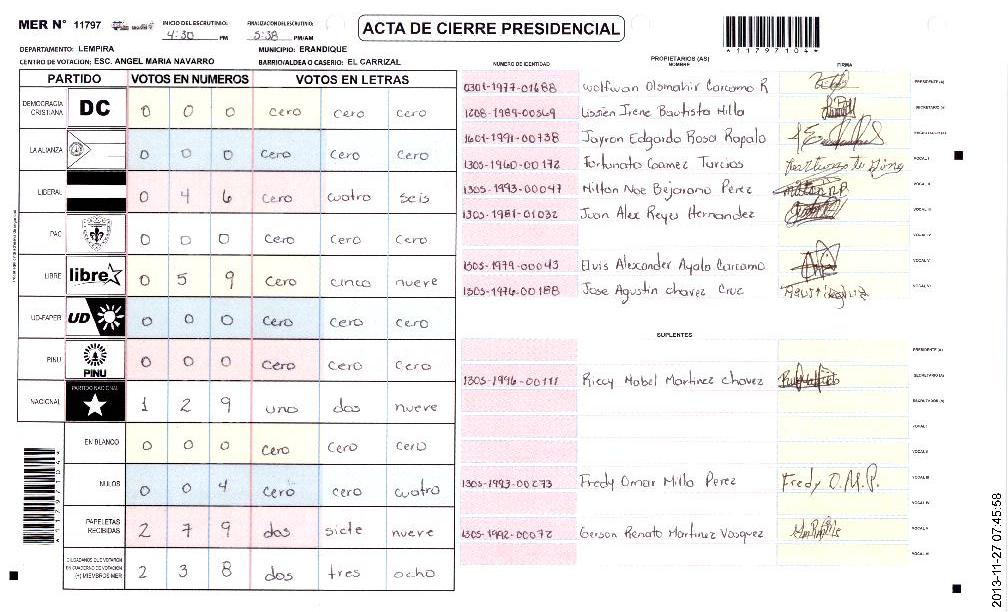 MER N° 11797
INICIO DEL ESCRUTINIO: 4:30 PM
FINALIZACION DEL ESCRUTINIO: 5:38 PM/AM
ACTA DE CIERRE PRESIDENCIAL
*117971044*
DEPARTAMENTO: LEMPIRA
MUNICIPIO: ERANDIQUE
CENTRO DE VOTACION: ESC. ANGEL MARIA NAVARRO
BARRIO/ALDEA O CASERIO: EL CARRIZAL
PARTIDO VOTOS EN NUMEROS VOTOS EN LETRAS
DEMOCRACIA CRISTIANA DC 0 0 0 cero cero cero
LA ALIANZA 0 0 0 cero cero cero
LIBERAL 0 4 6 cero cuatro seis
PAC 0 0 0 cero cero cero
LIBRE libre 0 5 9 cero cinco nueve
UD-FAPER UD 0 0 0 cero cero cero
PINU PINU 0 0 0 cero cero cero
NACIONAL PARTIDO NACIONAL 1 2 9 uno dos nueve
EN BLANCO 0 0 0 cero cero cero
NULOS 0 0 4 cero cero cuatro
PAPELETAS RECIBIDAS 2 7 9 dos siete nueve
CIUDADANOS QUE VOTARON EN CUADERNO DE VOTACION (+) MIEMBROS MER 2 3 8 dos tres ocho
PROPIETARIOS (AS)
NUMERO DE IDENTIDAD NOMBRE FIRMA
0301-1977-01688 Wolfwan Olsmahir Carcamo R PRESIDENTE (A)
1208-1989-00569 Lissien Irene Bautista Milla SECRETARIO (A)
1601-1991-00738 Jayron Edgardo Rosa Rapalo ESCRUTADOR (A)
1305-1960-00172 Fortunato Gomez Turcios VOCAL I
1305-1993-00047 Milton Noe Bejarano Perez VOCAL II
1305-1981-01032 Juan Alex Reyes Hernandez VOCAL III
VOCAL IV
1305-1979-00043 Elvis Alexander Ayala Carcamo VOCAL V
1305-1976-00188 Jose Agustin chavez Cruz VOCAL VI
SUPLENTES
PRESIDENTE (A)
1305-1996-00111 Riccy Mabel Martinez Chavez SECRETARIO (A)
ESCRUTADOR (A)
VOCAL I
VOCAL II
1305-1993-00273 Fredy Omar Milla Perez Fredy O.M.P. VOCAL III
VOCAL IV
1305-1992-00072 Gerson Renato Martinez Vasquez VOCAL V
VOCAL VI
2013-11-27 07:45:58